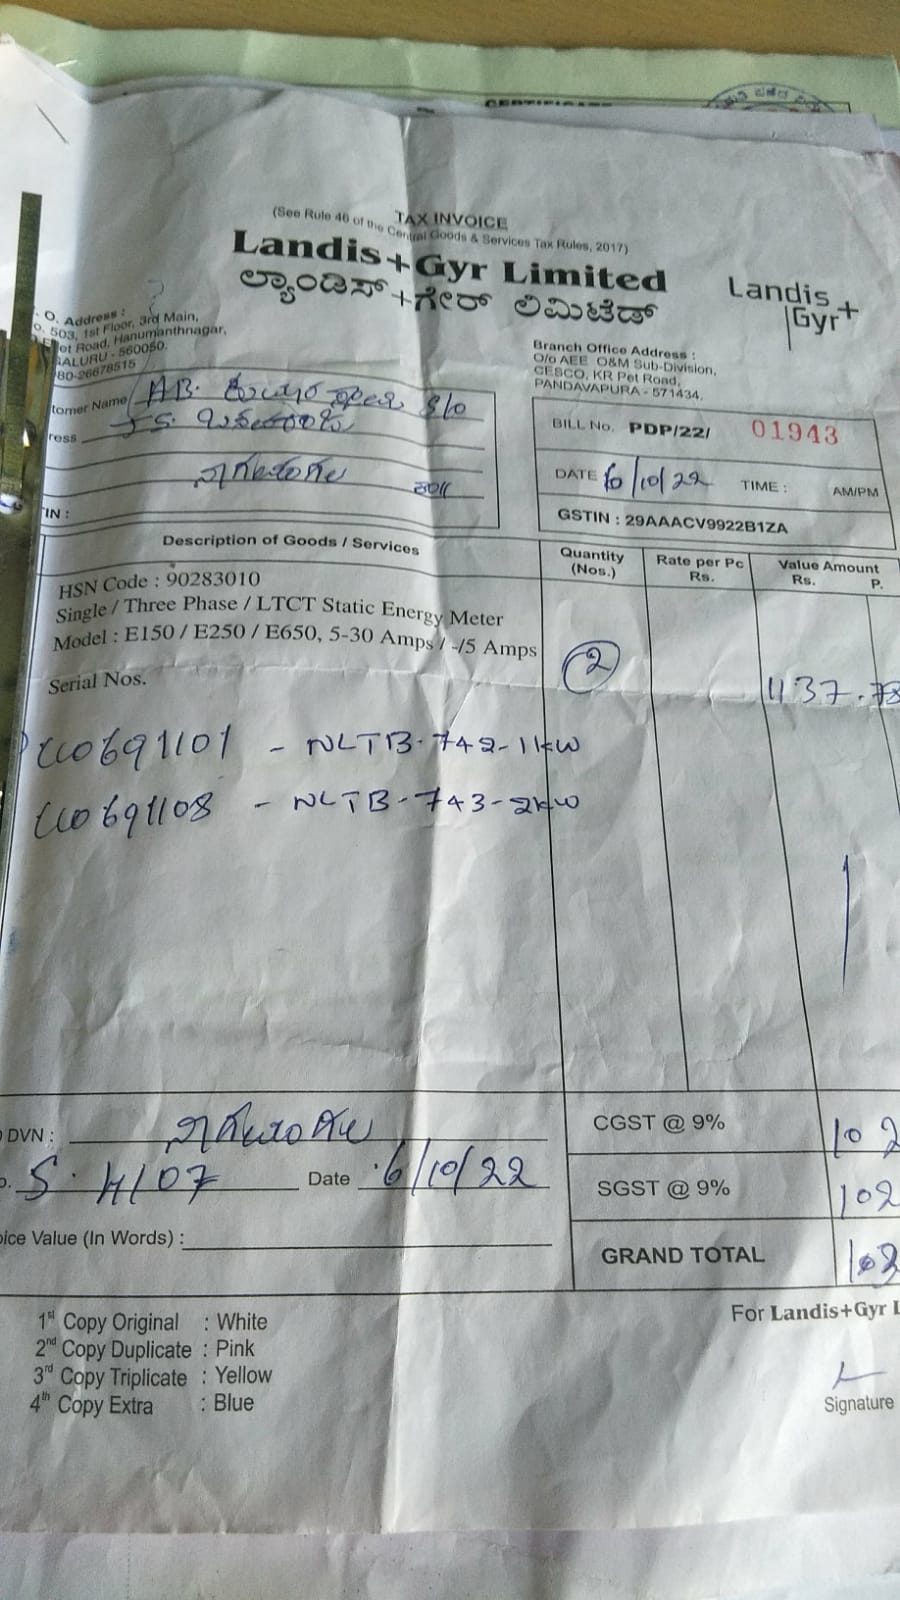 CERTIFICATE
TAX INVOICE
(See Rule 46 of the Central Goods & Services Tax Rules, 2017)
Landis+Gyr Limited
ಲ್ಯಾಂಡಿಸ್+ಗೇರ್ ಲಿಮಿಟೆಡ್
Landis
Gyr+
O. Address :
503, 1st Floor, 3rd Main,
Road, Hanumanthnagar,
GALURU - 560050.
80-26678515
Branch Office Address :
O/o AEE O&M Sub-Division,
CESCO, KR Pet Road,
PANDAVAPURA - 571434.
tomer Name S/o
ress
IN :
BILL No. PDP/22/ 01943
DATE 6/10/22 TIME : AM/PM
GSTIN : 29AAACV9922B1ZA
Description of Goods / Services
Quantity (Nos.)
Rate per Pc Rs.
Value Amount Rs. P.
HSN Code : 90283010
Single / Three Phase / LTCT Static Energy Meter
Model : E150 / E250 / E650, 5-30 Amps / -/5 Amps
2
1137.78
Serial Nos.
691101 - NLTB-742-1kW
691108 - NLTB-743-2kW
DVN :
S. 4107 Date 6/10/22
oice Value (In Words) :
CGST @ 9% 102
SGST @ 9% 102
GRAND TOTAL
1st Copy Original : White
2nd Copy Duplicate : Pink
3rd Copy Triplicate : Yellow
4th Copy Extra : Blue
For Landis+Gyr L
Signature